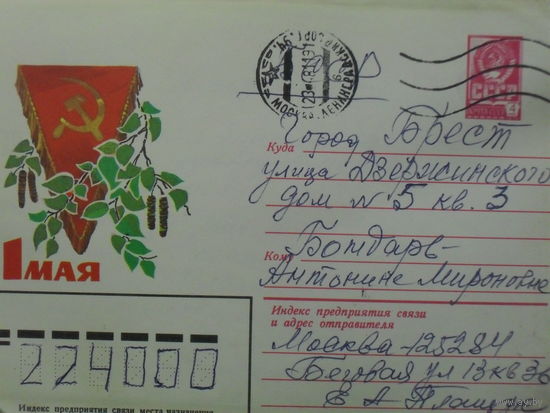 СССР
4
МОСКВА
Куда
Город Брест
улица Дзержинского
дом № 5 кв. 3
Кому
Бондарь
Антонине Мироновне
1 МАЯ
Индекс предприятия связи
и адрес отправителя
Москва-125284
Беговая ул 13 кв 36
Е А
224000
Индекс предприятия связи места назначения